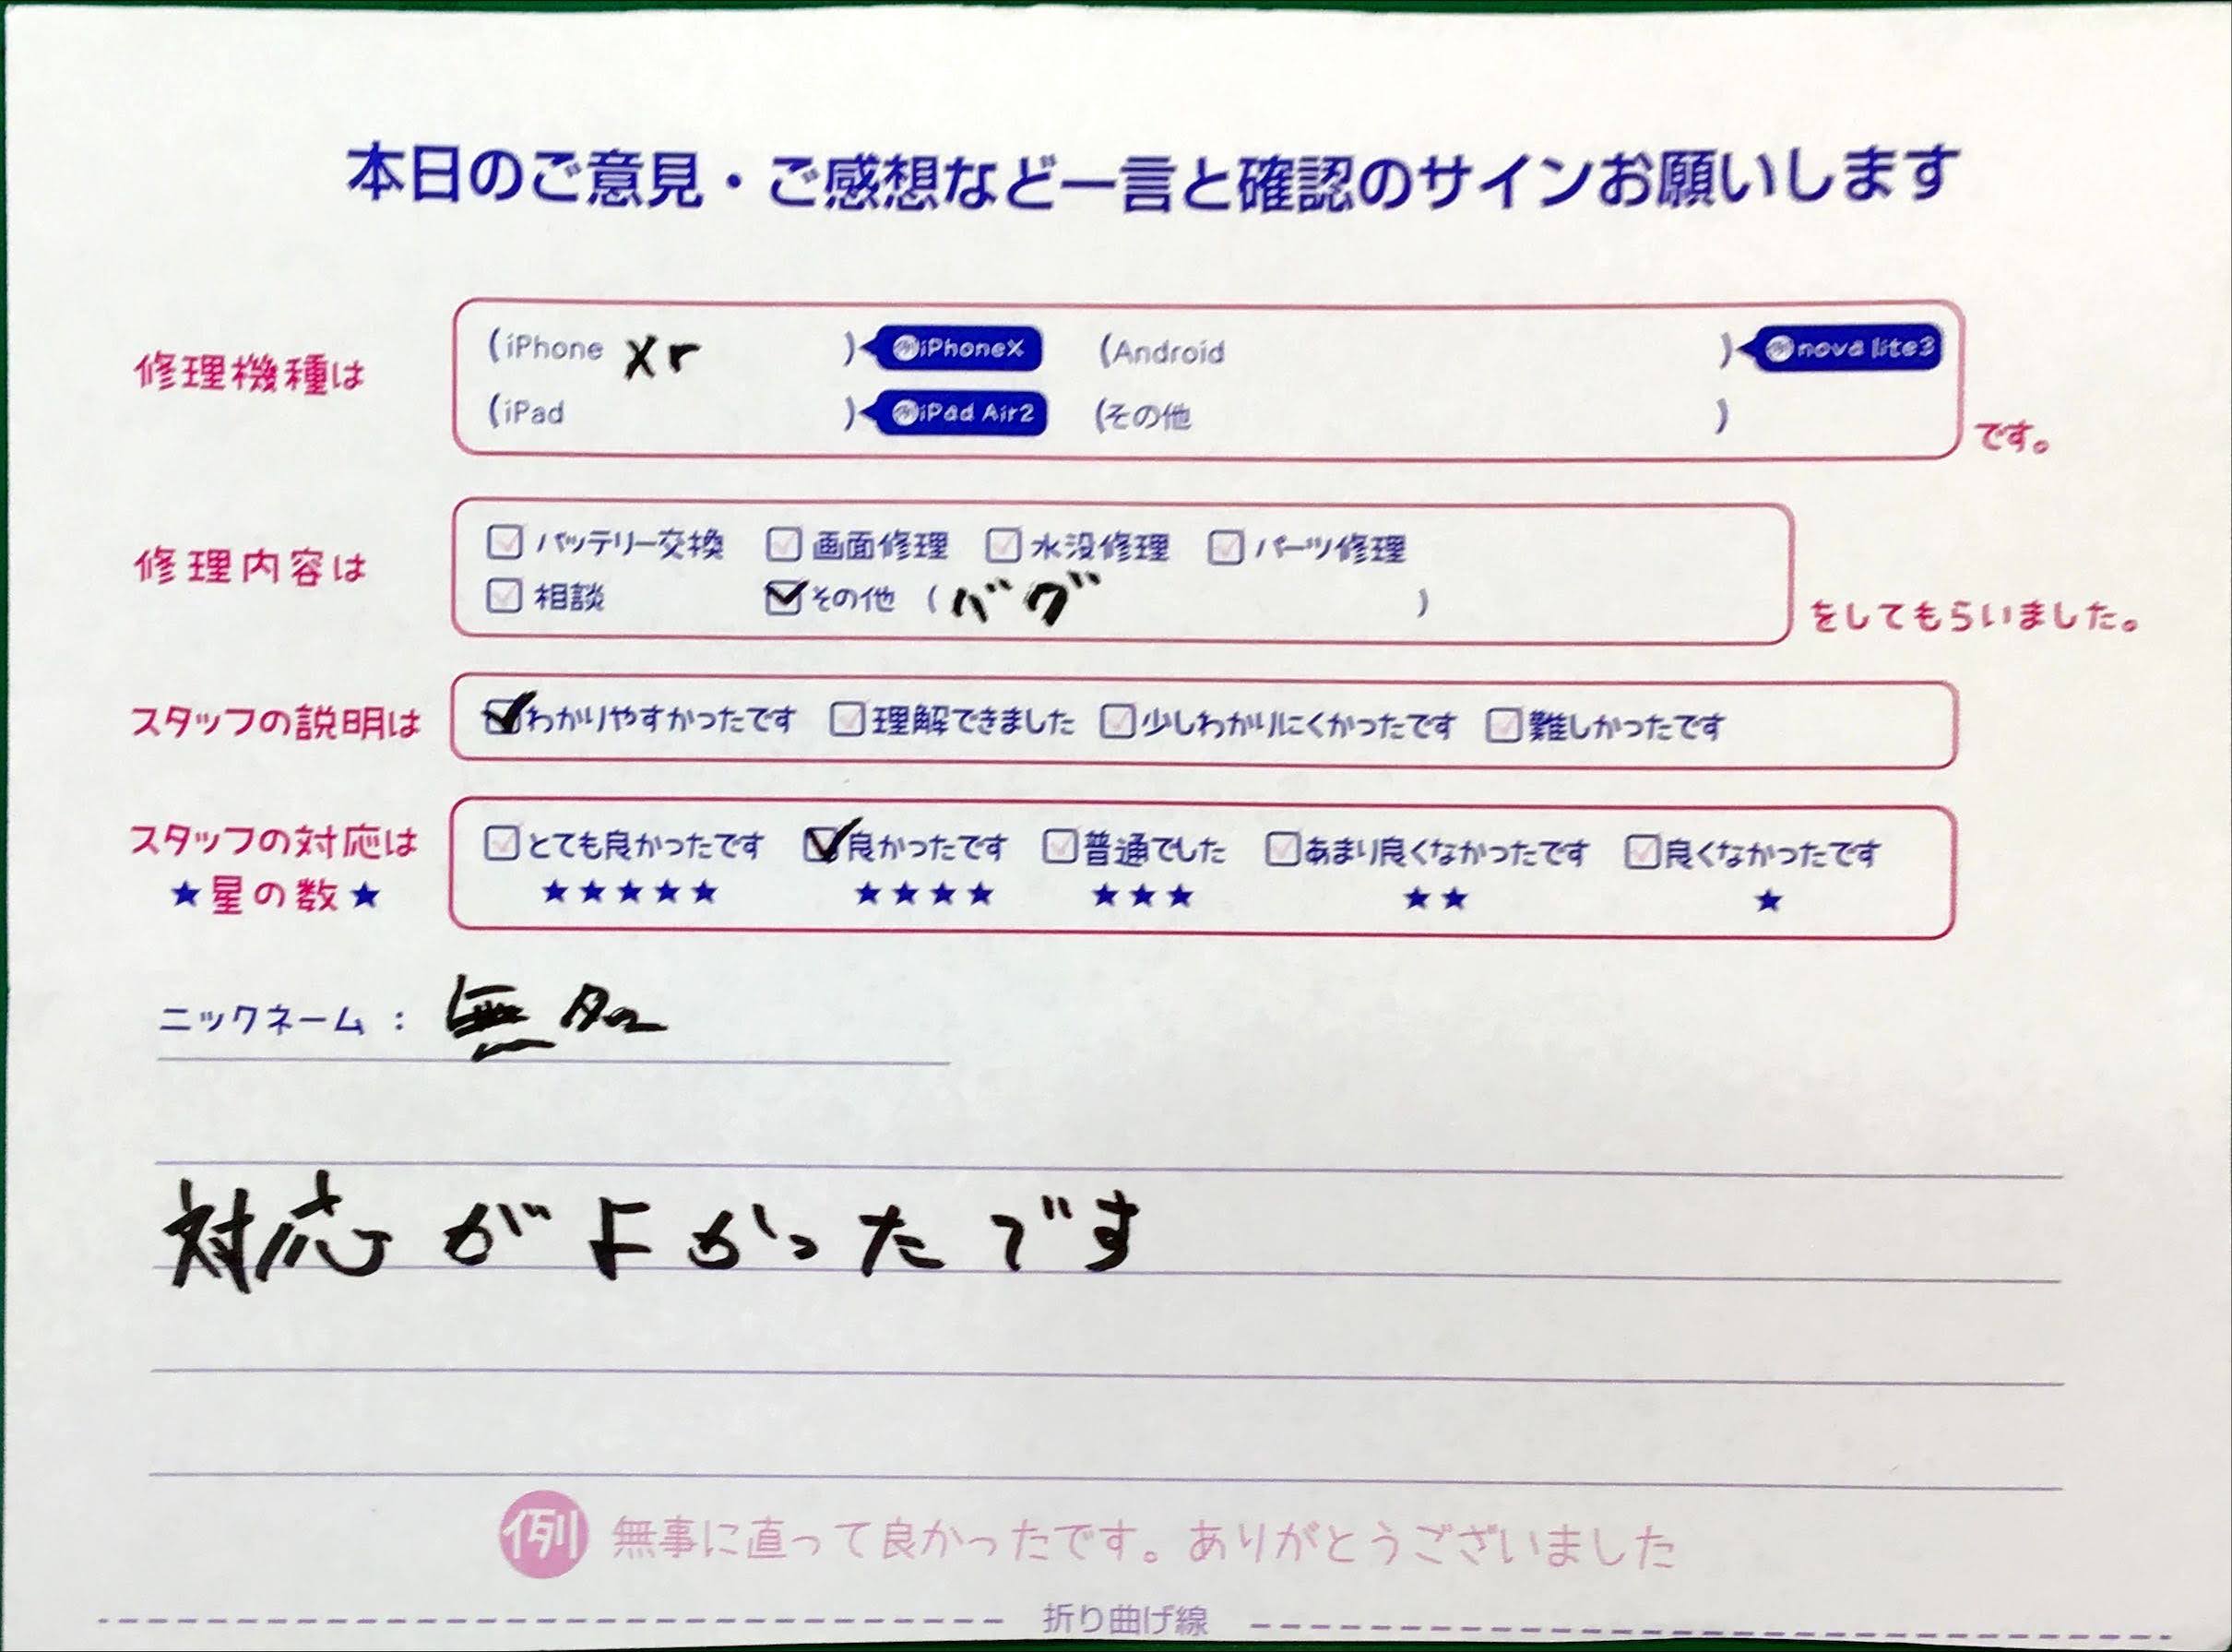 本日のご意見・ご感想など一言と確認のサインお願いします
修理機種は
(iPhone Xr ) 例iPhoneX (Android ) 例nova lite3
(iPad ) 例iPad Air2 (その他 )
です。
修理内容は
バッテリー交換 画面修理 水没修理 パーツ修理
相談 その他 ( バグ )
をしてもらいました。
スタッフの説明は
わかりやすかったです 理解できました 少しわかりにくかったです 難しかったです
スタッフの対応は
★星の数★
とても良かったです 良かったです 普通でした あまり良くなかったです 良くなかったです
★★★★★ ★★★★ ★★★ ★★ ★
ニックネーム : 無
対応がよかったです
例 無事に直って良かったです。ありがとうございました
折り曲げ線